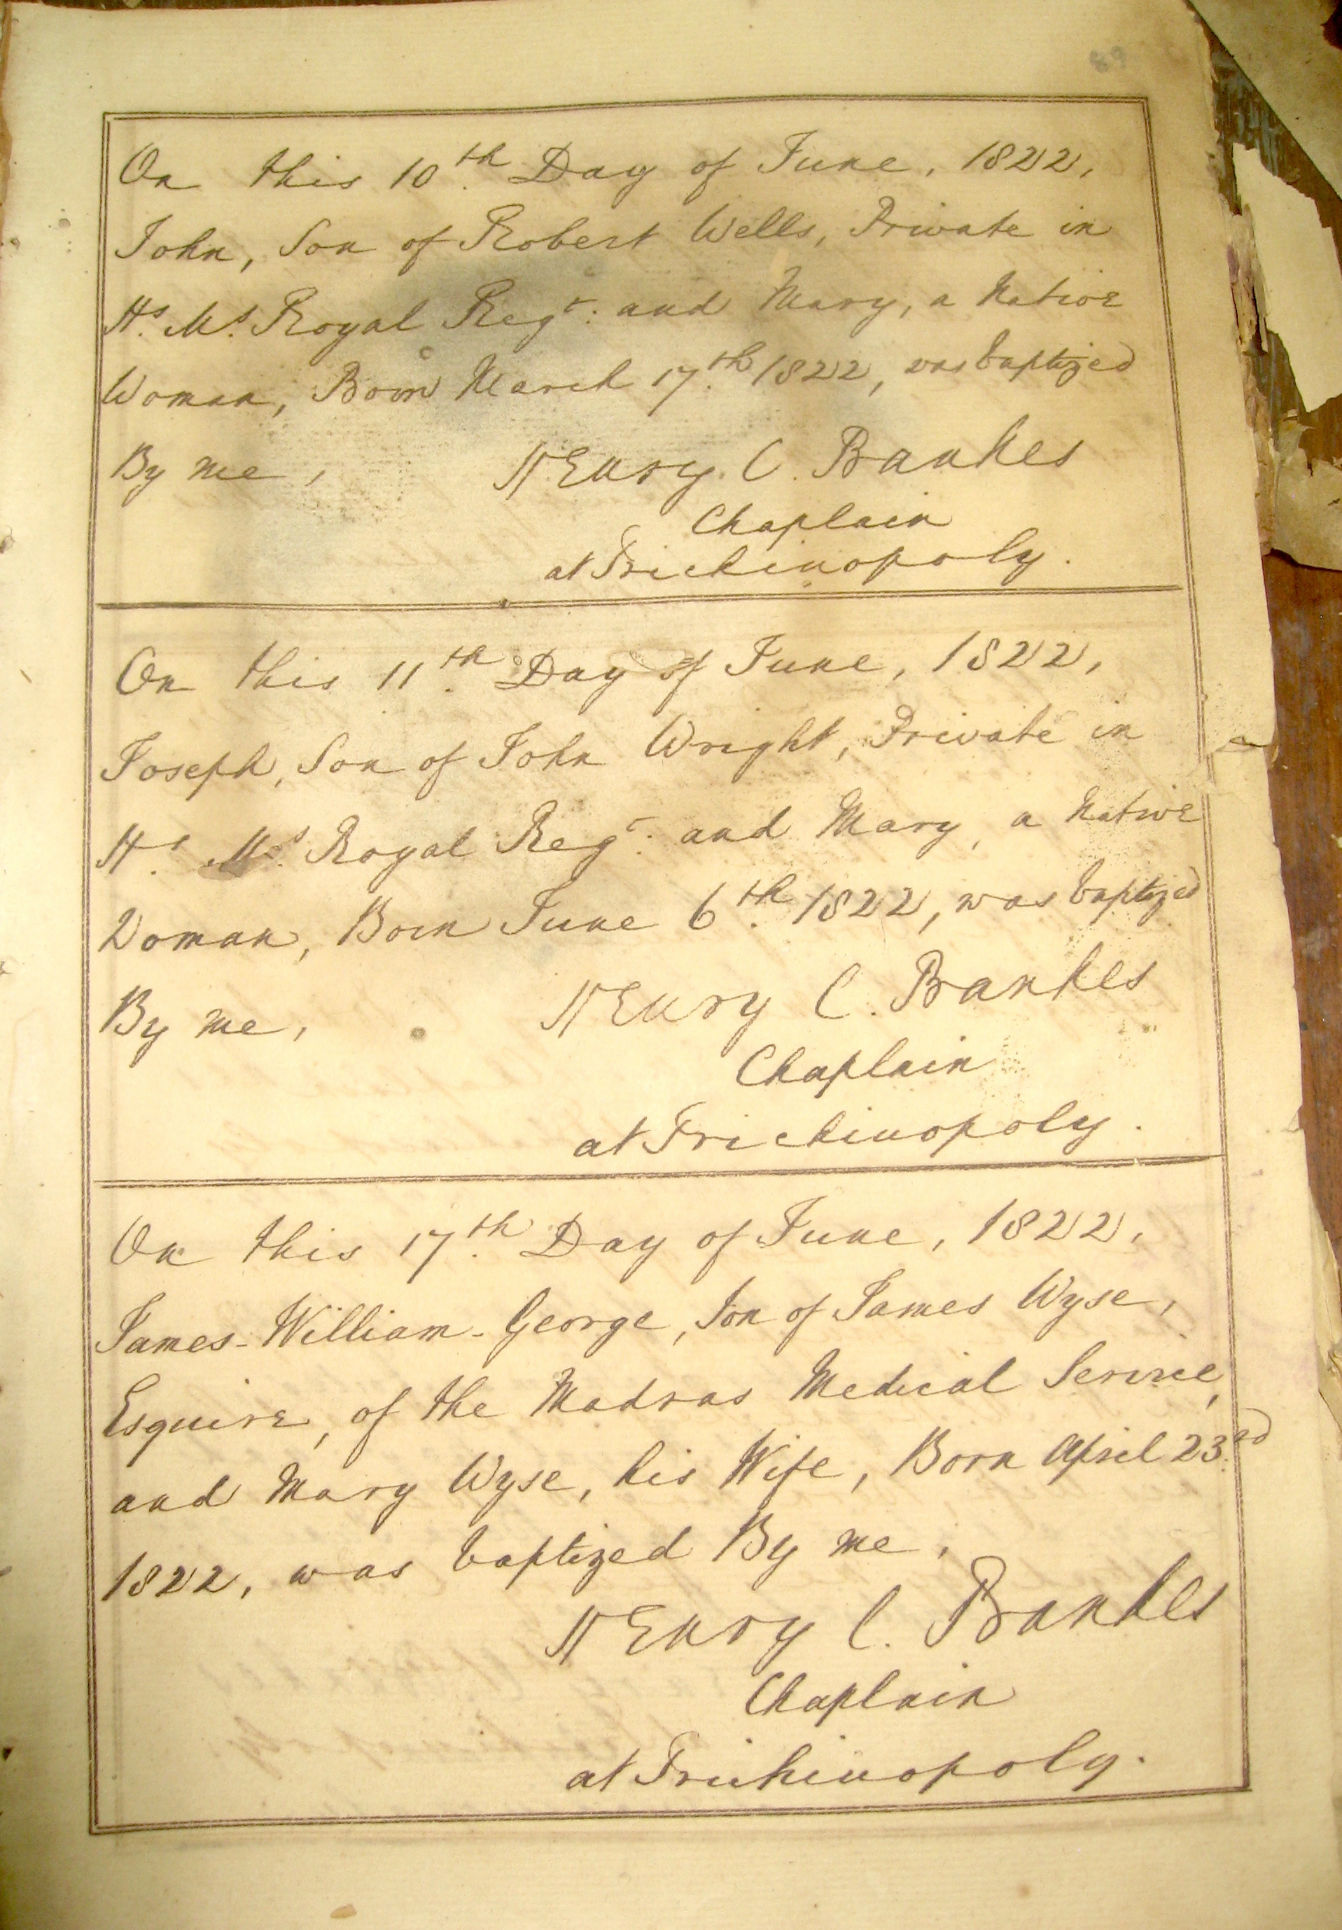 89
On this 10th. Day of June, 1822,
John, Son of Robert Wells, Private in
Hs. Ms. Royal Regt: and Mary, a Native
Woman, Born March 17th. 1822, was baptized
By me,
Henry C. Bankes
Chaplain
at Trichinopoly.
On this 11th. Day of June, 1822,
Joseph, Son of John Wright, Private in
Hs. Ms. Royal Regt: and Mary, a Native
Woman, Born June 6th. 1822, was baptized
By me,
Henry C. Bankes
Chaplain
at Trichinopoly.
On this 17th. Day of June, 1822,
James-William-George, Son of James Wyse,
Esquire, of the Madras Medical Service,
and Mary Wyse, his Wife, Born April 23.rd
1822, was baptized By me,
Henry C. Bankes
Chaplain
at Trichinopoly.